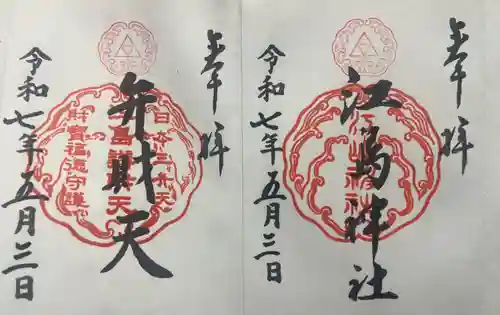 奉拝
江島神社
令和七年五月三日
奉拝
日本三弁天
弁財天
財寶福徳守護
令和七年五月三日